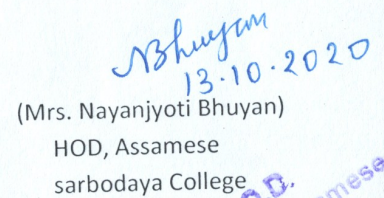 NBhuyan
13.10.2020
(Mrs. Nayanjyoti Bhuyan)
HOD, Assamese
sarbodaya College